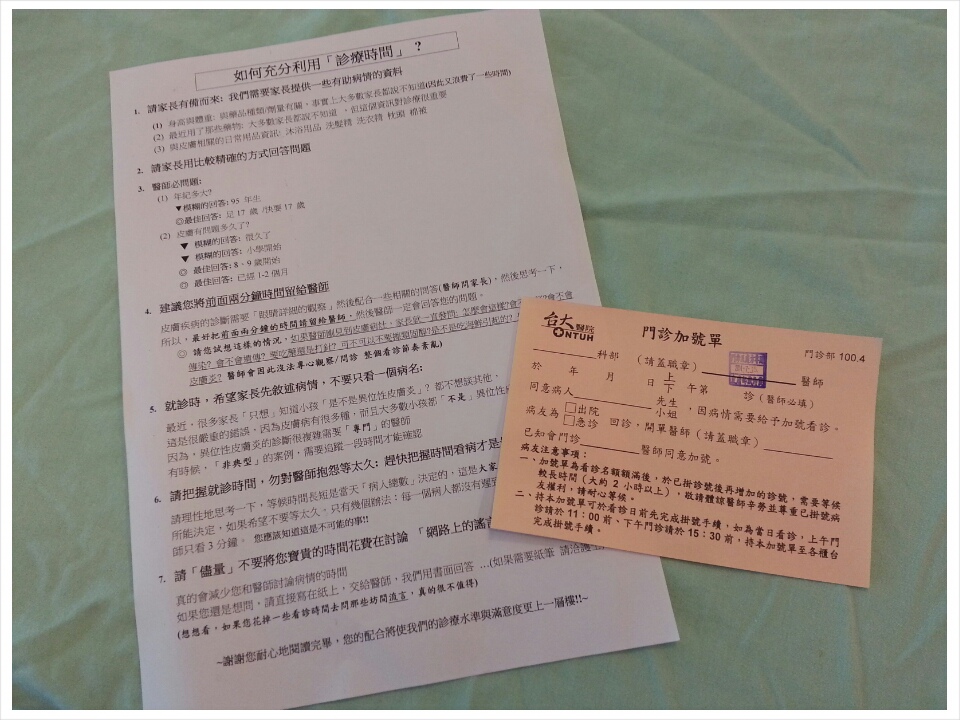 如何充分利用「診療時間」?
1. 請家長有備而來: 我們需要家長提供一些有助病情的資料
(1) 身高與體重: 與藥品種類/劑量有關，事實上大多數家長都說不知道(因此又浪費了一些時間)
(2) 最近用了那些藥物: 大多數家長都說不知道，但這個資訊對診療很重要
(3) 與皮膚相關的日常用品資訊: 沐浴用品 洗髮精 洗衣精 枕頭 棉被
2. 請家長用比較精確的方式回答問題
3. 醫師必問題:
(1) 年紀多大?
▼模糊的回答: 95 年生
◎最佳回答: 足 17 歲 /快要 17 歲
(2) 皮膚有問題多久了?
▼ 模糊的回答: 很久了
▼ 模糊的回答: 小學開始
◎ 最佳回答: 8、9 歲開始
◎ 最佳回答: 已經 1-2 個月
4. 建議您將前面兩分鐘時間留給醫師
皮膚疾病的診斷需要「眼睛詳細的觀察」然後配合一些相關的問答(醫師問家長)，然後思考一下，
所以，最好把前面兩分鐘的時間請留給醫師，然後醫師一定會回答您的問題。
◎ 請您試想這樣的情況，如果醫師眼見到皮膚病灶，家長就一直發問: 怎麼會這樣?會
傳染? 會不會遺傳? 要吃藥還是打針? 可不可以不要擦類固醇?是不是吃海鮮引起的?
皮膚炎? 醫師會因此沒法專心觀察/問診 整個看診節奏紊亂)
5. 就診時，希望家長先敘述病情，不要只看一個病名:
最近，很多家長「只想」知道小孩「是不是異位性皮膚炎」? 都不想談其他，
這是很嚴重的錯誤，因為皮膚病有很多種，而且大多數小孩都「不是」異位性
因為，異位性皮膚炎的診斷很複雜需要「專門」的醫師
有時候，「非典型」的案例，需要追蹤一段時間才能確認
6. 請把握就診時間，勿對醫師抱怨等太久: 趕快把握時間看病才是
請理性地思考一下，等候時間長短是當天「病人總數」決定的，這是大家
所能決定，如果希望不要等太久，只有幾個辦法：每一個病人都沒有遲到
師只看 3 分鐘。 您應該知道這是不可能的事!!
7. 請「儘量」不要將您寶貴的時間花費在討論「網路上的謠言
真的會減少您和醫師討論病情的時間
如果您還是想問，請直接寫在紙上，交給醫師，我們用書面回答 …(如果需要紙筆 請洽護
(想想看，如果您花掉一些看診時間去問那些坊間謠言，真的很不值得)
~謝謝您耐心地閱讀完畢，您的配合將使我們的診療水準與滿意度更上一層樓!!~
台大醫院
NTUH
門診加號單
門診部 100.4
科部 （請蓋職章） 醫師
於 年 月 日 上下 午第 診（醫師必填）
同意病人 先生小姐 ，因病情需要給予加號看診。
病友為 □出院 □急診 回診，開單醫師（請蓋職章）
已知會門診 醫師同意加號。
病友注意事項：
一、加號單為看診名額額滿後，於已掛診號後再增加的診號，需要等候
較長時間（大約 2 小時以上），敬請體諒醫師辛勞並尊重已掛號病
友權利，請耐心等候。
二、持本加號單可於看診日前先完成掛號手續，如為當日看診，上午門
診請於 11：00 前、下午門診請於 15：30 前，持本加號單至各櫃台
完成掛號手續。